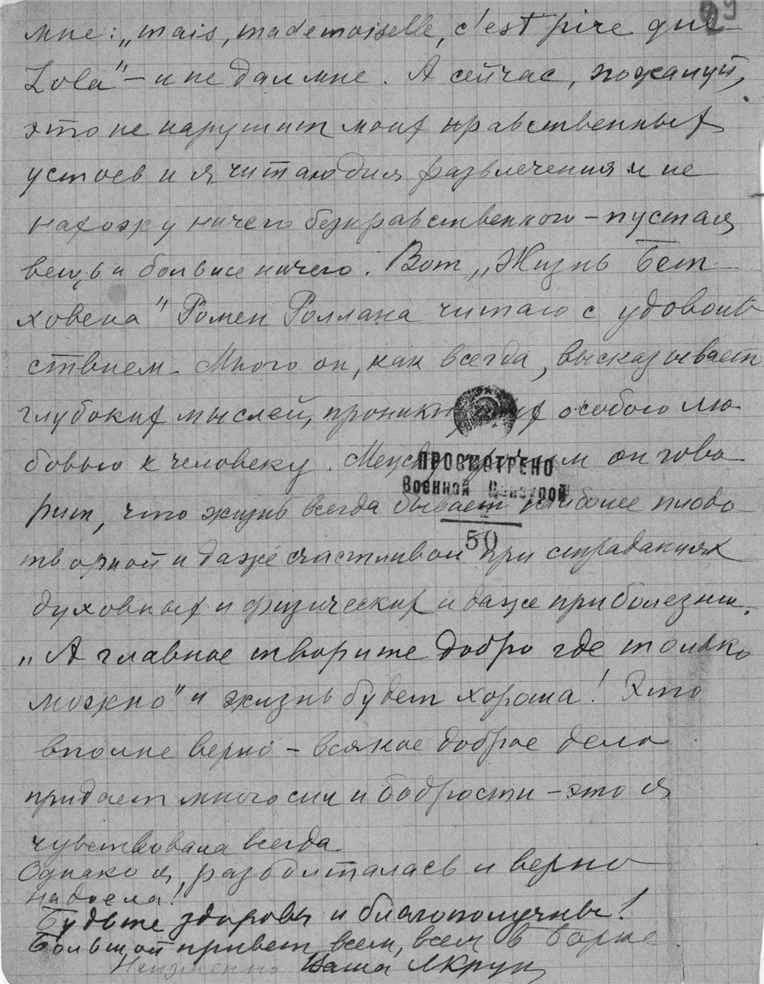 29
мне: „mais, mademoiselle, c'est pire que
Zola" – и не дал мне. А сейчас, пожалуй,
это не нарушит моих нравственных
устоев и я читаю для развлечения и не
нахожу ничего безнравственного – пустая
вещь и больше ничего. Вот „Жизнь Бет-
ховена" Ромен Роллана читаю с удоволь
ствием. Много он, как всегда, высказывает
глубоких мыслей, особою лю
бовью к человеку. Между он гово
ПРОСМОТРЕНО
Военной Цензурой
50
рит, что жизнь всегда бывает наиболее плодо
творной и даже счастливой при страданиях
духовных и физических и даже при болезни.
„А главное творите добро где только
можно" и жизнь будет хороша! Это
вполне верно – всякое доброе дело
придает много сил и бодрости – это я
чувствовала всегда
Однако я разболталась и верно
надоела!
Будьте здоровы и благополучны!
Большой привет всем, всем в
Неизменно Ваша